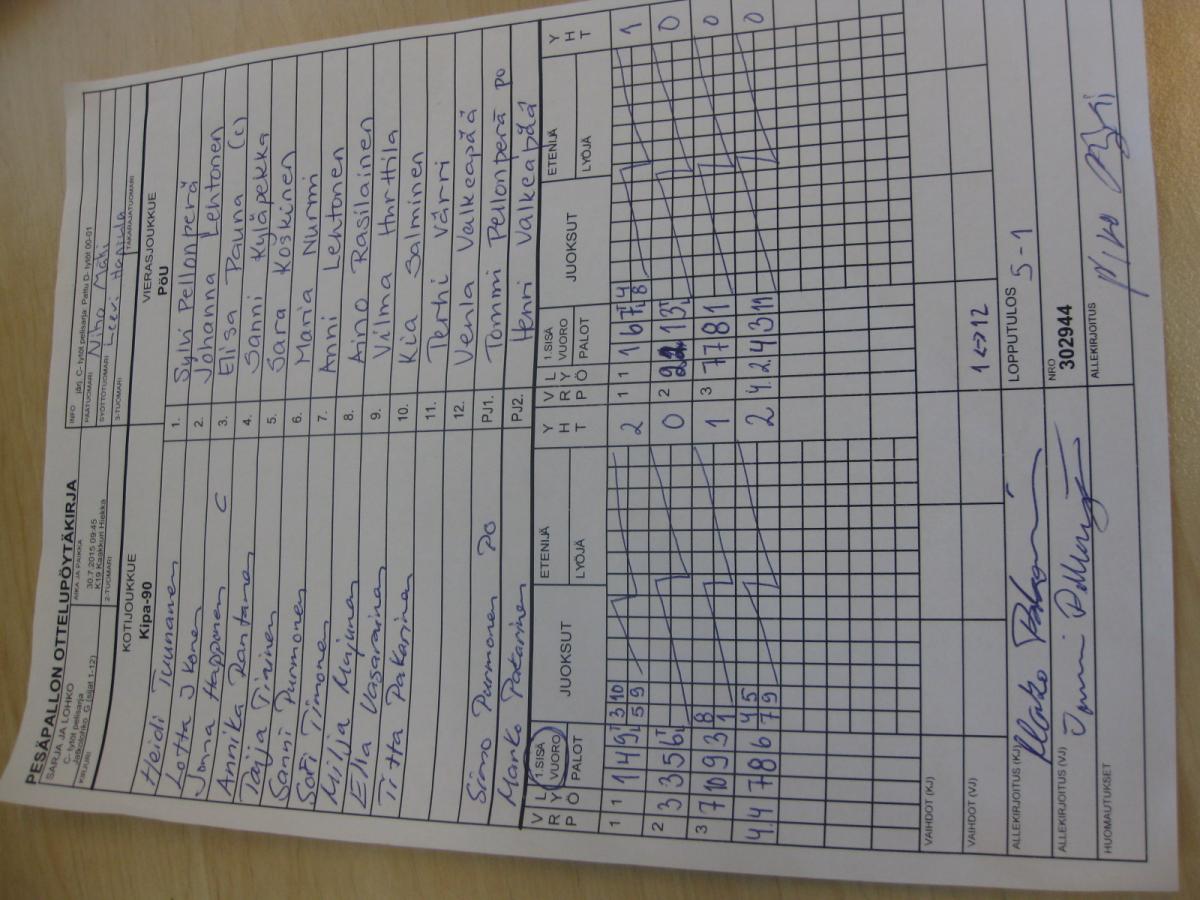 PESÄPALLON OTTELUPÖYTÄKIRJA
SARJA JA LOHKO
C- tytöt pelisarja
Jatkolohko G (sijat 1-12)
AIKA JA PAIKKA
30.7.2015 09:45
K19 Kaakkuri Hiekka
INFO järj. C- tytöt pelisarja Pattu D- tytöt 00-01
PÄÄTUOMARI
SYÖTTÖTUOMARI
KIRJURI
2-TUOMARI
3-TUOMARI
TAKARAJATUOMARI
KOTIJOUKKUE
Kipa-90
VIERASJOUKKUE
PöU
Heidi Tuunanen 1. Sylvi Pellonperä
Lotta Ikonen 2. Johanna Lehtonen
Jonna Happonen C 3. Elisa Pauna (c)
Annika Rantanen 4. Sanni Kyläpekka
Taija Tininen 5. Sara Koskinen
Sanni Purmonen 6. Maria Nurmi
Sofi Timonen 7. Anni Lehtonen
Milja Mujunen 8. Aino Rasilainen
Ella Vasarainen 9. Vilma Hurtila
Titta Pakarinen 10. Kia Salminen
11. Terhi Värri
12. Venla Valkeapää
Simo Purmonen PO PJ1. Tommi Pellonperä PO
Marko Pakarinen PJ2. Henri Valkeapää
V R L Y Ö P 1.SISÄ VUORO PALOT JUOKSUT ETENIJÄ LYÖJÄ Y H T
V R L Y Ö 1.SISÄ VUORO PALOT JUOKSUT ETENIJÄ LYÖJÄ Y H T
1 1 1 4 9 3 10 5 9 2 1 1 1 6 7 4 8 1
2 3 3 5 6 0 2 1 3 0
3 7 10 9 3 8 1 1 3 7 7 8 1 0
4. 4 7 8 6 4 5 7 9 2 4. 2. 4 3 11 0
VAIHDOT (KJ)
VAIHDOT (VJ) 1 <-> 12
ALLEKIRJOITUS (KJ) LOPPUTULOS 5-1
ALLEKIRJOITUS (VJ) NRO 302944
HUOMAUTUKSET ALLEKIRJOITUS